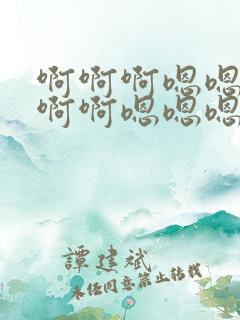 啊啊啊嗯嗯
啊啊嗯嗯嗯
譚建斌
未经同意禁止转载